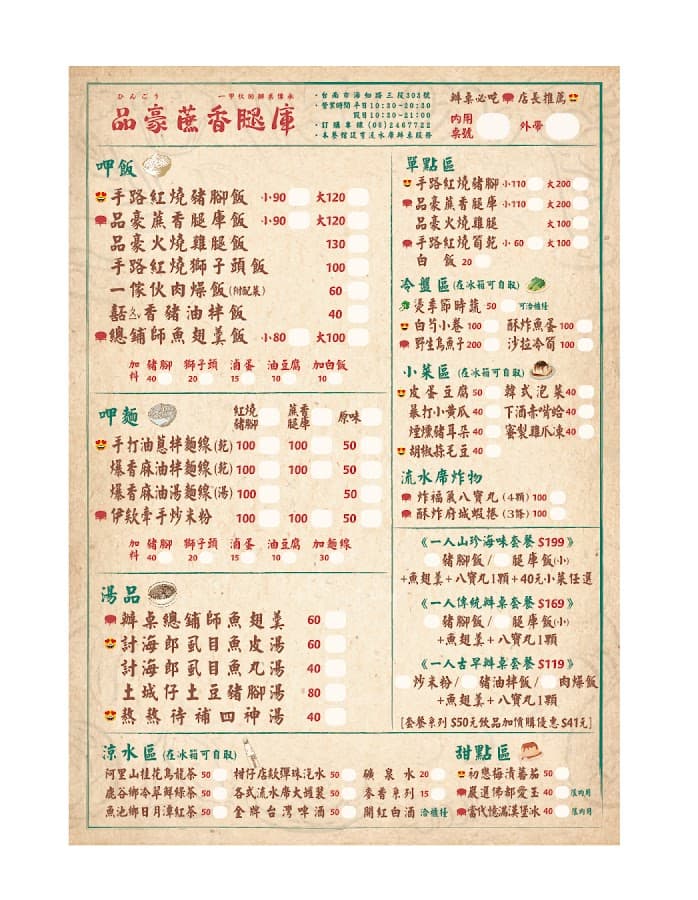 ひんごう
一甲伙的辦桌傳承
品豪蔗香腿庫
・台南市海安路三段303號
・營業時間 平日10:30-20:30
假日10:30-21:00
・訂購專線(06)2467722
・本餐館設有流水席辦桌服務
辦桌必吃 店長推薦
內用桌號 外帶
呷飯
手路紅燒豬腳飯 小90 大120
品豪蔗香腿庫飯 小90 大120
品豪火燒雞腿飯 130
手路紅燒獅子頭飯 100
一傢伙肉燥飯(附配菜) 60
香豬油拌飯 40
總鋪師魚翅羹飯 小80 大100
加料 豬腳 40 獅子頭 20 滷蛋 15 油豆腐 10 加白飯 10
呷麵
紅燒豬腳 蔗香腿庫 原味
手打油蔥拌麵線(乾) 100 100 50
爆香麻油拌麵線(乾) 100 100 50
爆香麻油湯麵線(湯) 100 50
伊欸牽手炒米粉 100 100 50
加料 豬腳 40 獅子頭 20 滷蛋 15 油豆腐 10 加麵線 30
湯品
辦桌總鋪師魚翅羹 60
討海郎虱目魚皮湯 60
討海郎虱目魚丸湯 40
土城仔土豆豬腳湯 80
熱熱待補四神湯 40
單點區
手路紅燒豬腳 小110 大200
品豪蔗香腿庫 小110 大200
品豪火燒雞腿 大100
手路紅燒筍乾 小60 大100
白飯 20
冷盤區(在冰箱可自取)
燙季節時蔬 50 可洽櫃檯
白芍小卷 100 酥炸魚蛋 100
野生烏魚子 200 沙拉冷筍 100
小菜區(在冰箱可自取)
皮蛋豆腐 50 韓式泡菜 40
暴打小黃瓜 40 下酒赤嘴蛤 40
煙燻豬耳朵 40 蜜製雞爪凍 40
胡椒蒜毛豆 40
流水席炸物
炸福氣八寶丸(4顆) 100
酥炸府城蝦捲(3條) 100
《一人山珍海味套餐 $199》
豬腳飯/ 腿庫飯(小)
+魚翅羹+八寶丸1顆+40元小菜任選
《一人傳統辦桌套餐 $169》
豬腳飯/ 腿庫飯(小)
+魚翅羹+八寶丸1顆
《一人古早辦桌套餐 $119》
炒米粉/ 豬油拌飯/ 肉燥飯
+魚翅羹+八寶丸1顆
[套餐系列 $50元飲品加價購優惠 $41元]
涼水區(在冰箱可自取)
阿里山桂花烏龍茶 50 柑仔店欸彈珠汽水 50 礦泉水 20
鹿谷鄉冷翠鮮綠茶 50 各式流水席大罐裝 50 麥香系列 15
魚池鄉日月潭紅茶 50 金牌台灣啤酒 50 開紅白酒 洽櫃檯
甜點區
初戀梅漬蕃茄 50
嚴選佛都愛玉 40 限內用
當代憶滿漢堡冰 40 限內用